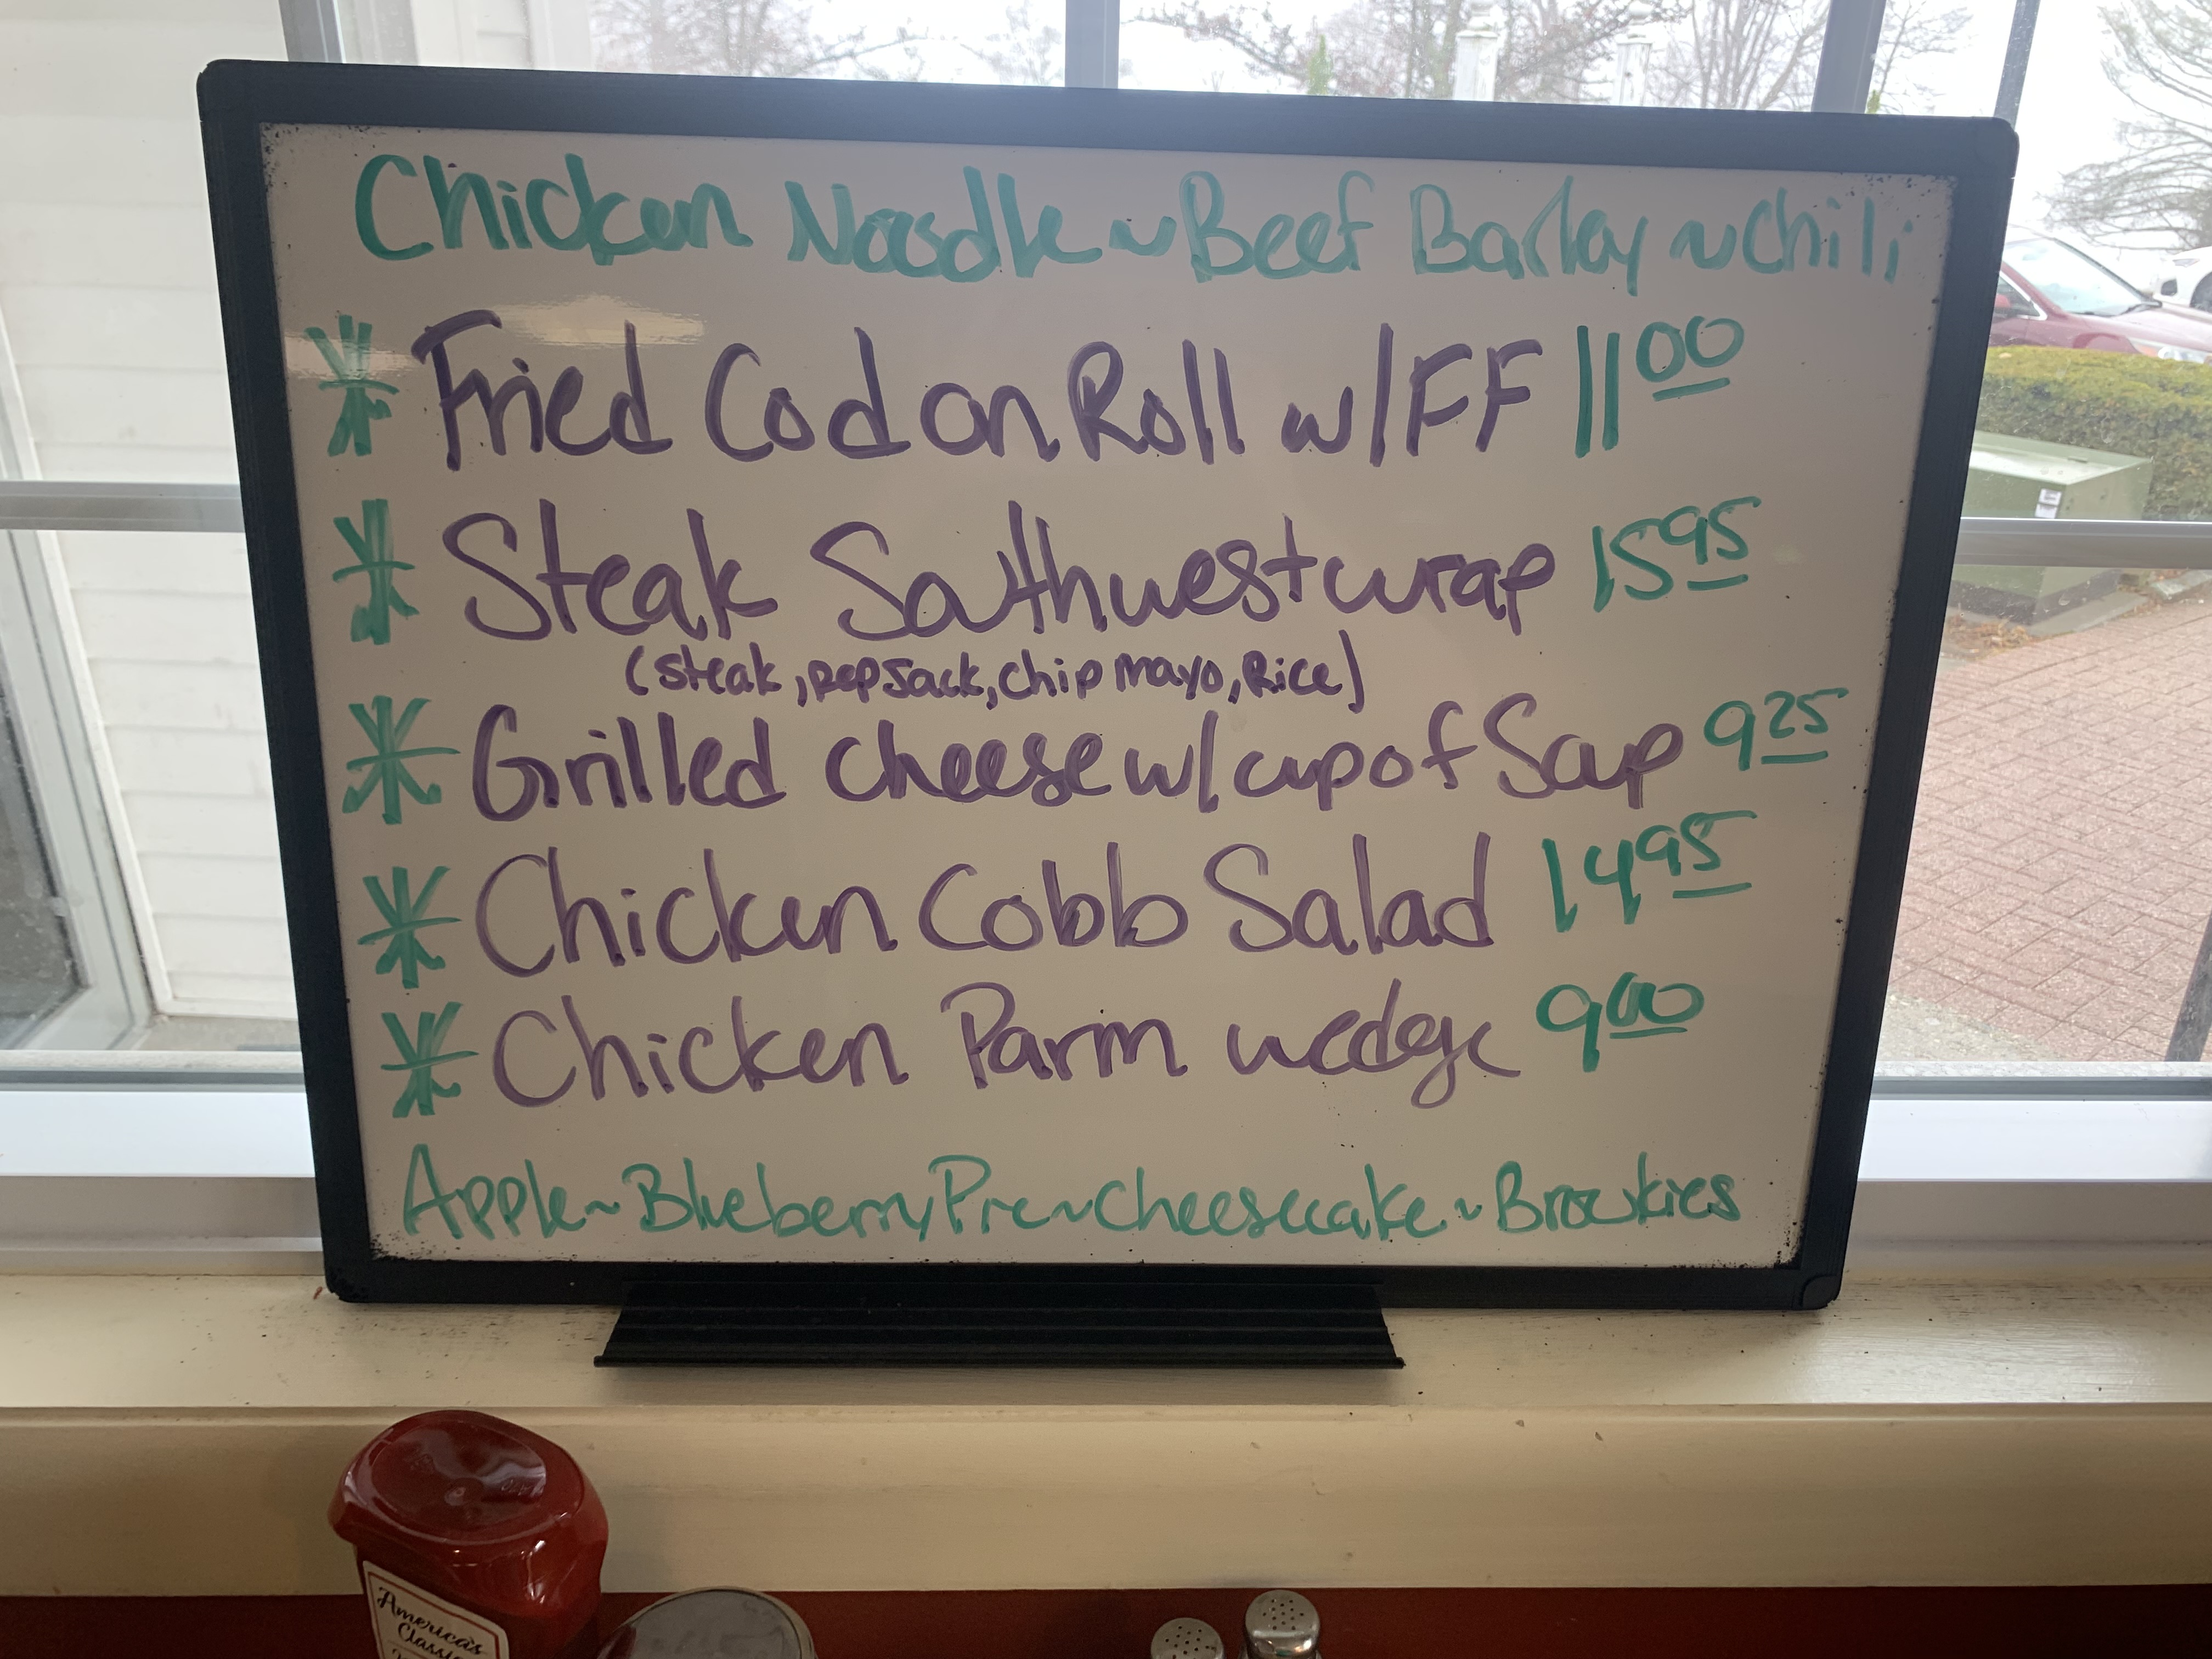 Chicken Noodle ~ Beef Barley ~ Chili
* Fried Cod on Roll w/FF 11 00
* Steak Southwest wrap 15 95
(steak, pepjack, chip mayo, Rice)
* Grilled cheese w/ cup of Soup 9 25
* Chicken Cobb Salad 14 95
* Chicken Parm wedge 9 00
Apple ~ Blueberry Pie ~ Cheesecake ~ Brookies
America's
Classic